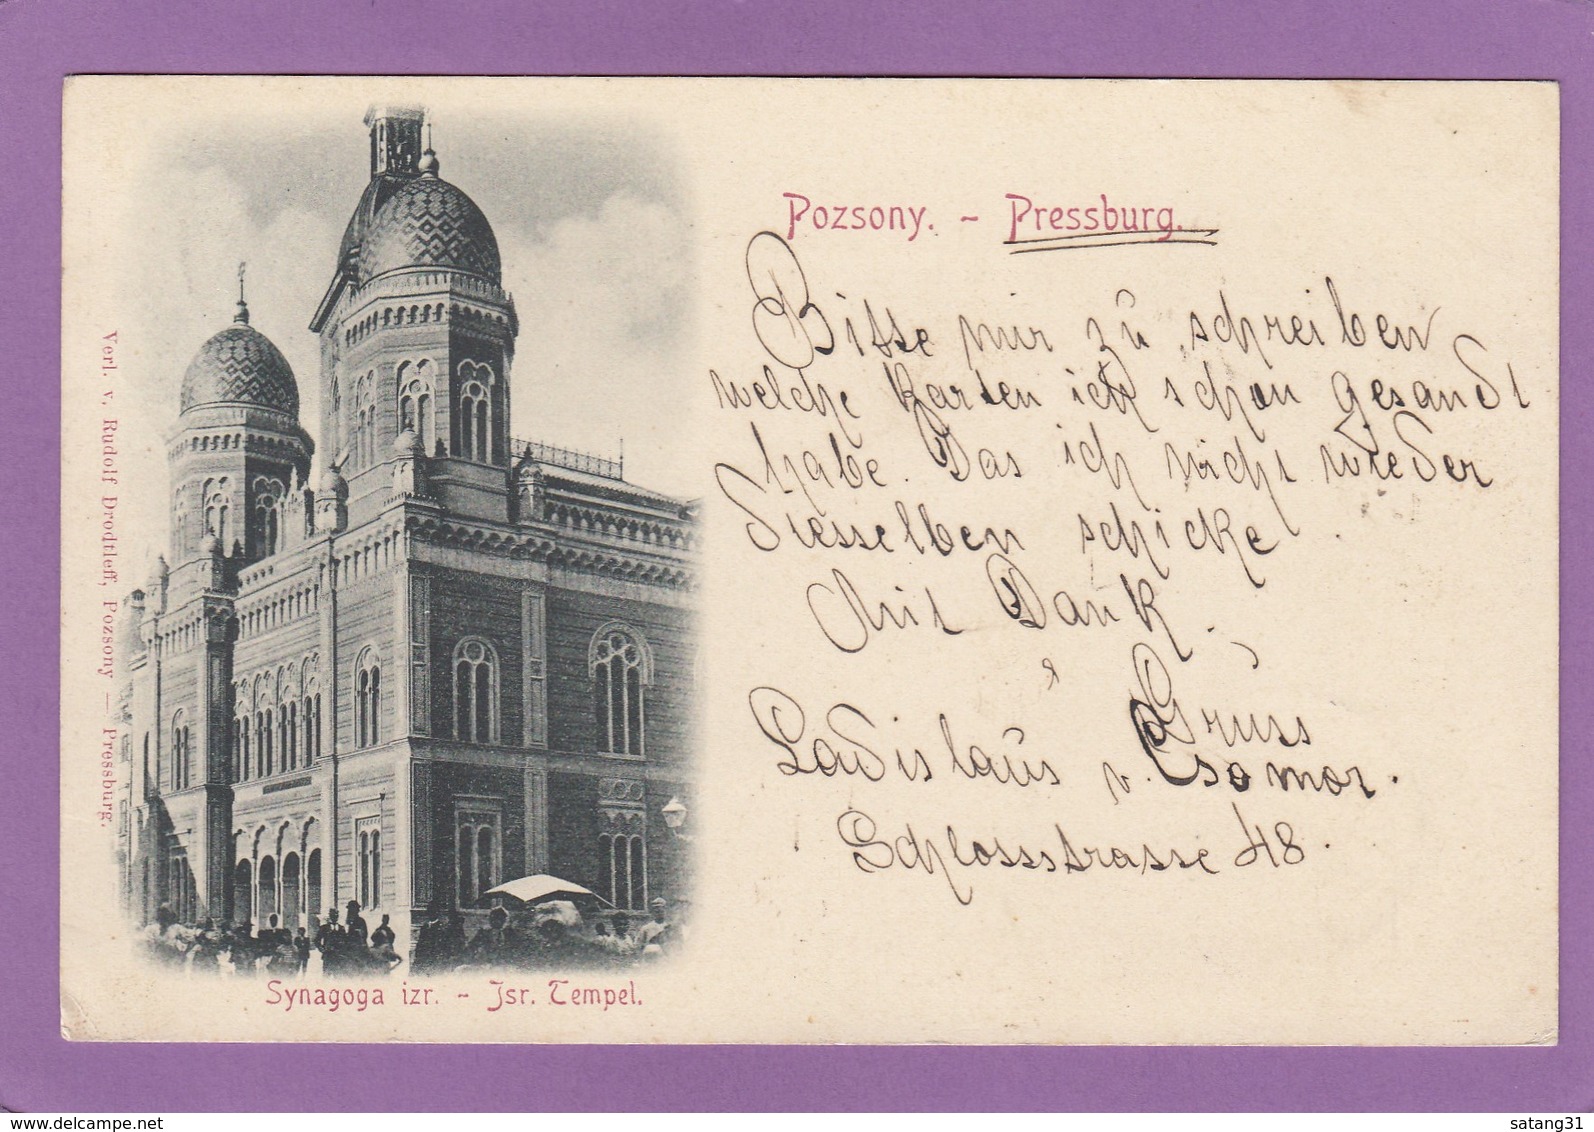 Pozsony. - Pressburg.
Bitte mir zu schreiben
welche Karten ich schon gesandt
habe. Das ich nicht wieder
diesselben schicke
Mit Dank.
Gruss
Ladislaus v. Csomor.
Schlossstrasse 48.
Verl. v. Rudolf Drodtleff, Pozsony — Pressburg.
Synagoga izr. - Isr. Tempel.
satang31